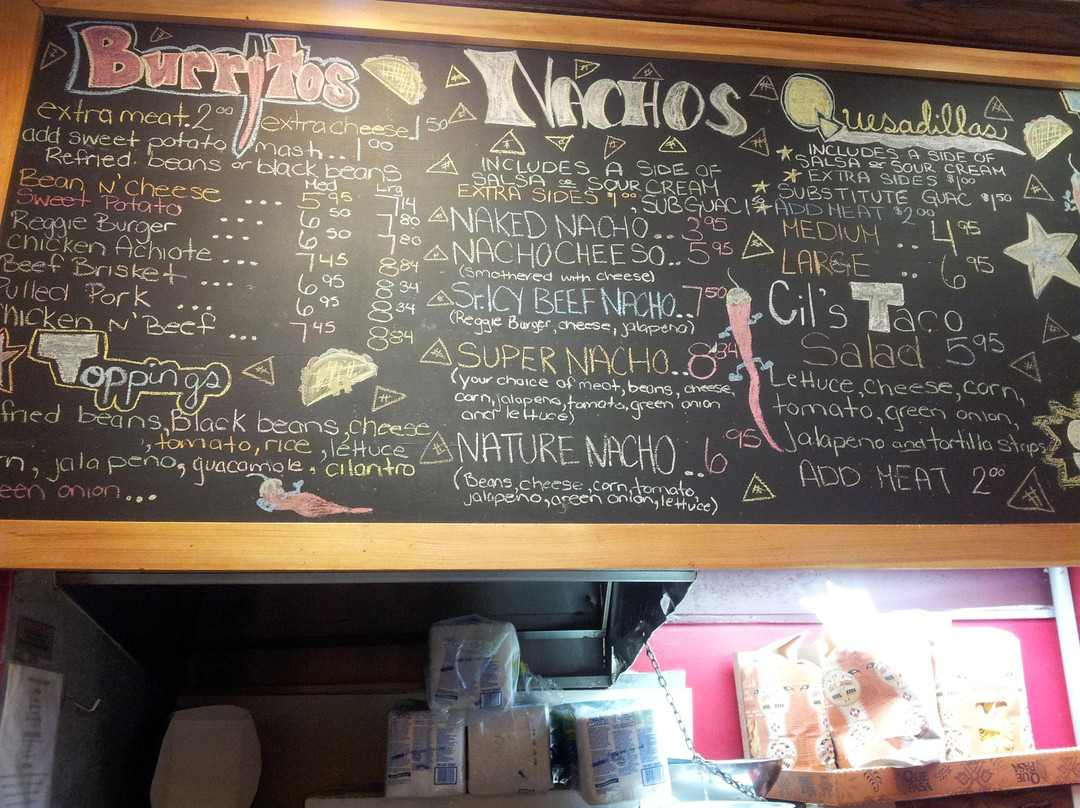 Burritos
extra meat. 2.00 extra cheese 1.50
add sweet potato mash.. 1.00
Refried beans or black beans
Med Lrg
Bean N' Cheese ... 5.95 7.14
Sweet Potato ... 6.50 7.80
Reggie Burger ... 6.50 7.80
Chicken Achiote ... 7.45 8.84
Beef Brisket ... 6.95 8.34
Pulled Pork ... 6.95 8.34
Chicken N' Beef ... 7.45 8.84
Toppings
fried beans, Black beans, cheese
, tomato, rice, lettuce
rn, jalapeno, guacamole, cilantro
een onion...
NACHOS
INCLUDES A SIDE OF
SALSA OR SOUR CREAM
EXTRA SIDES $1.00, SUB GUAC 1
NAKED NACHO.. 3.95
NACHO CHEESO.. 5.95
(smothered with cheese)
SPICY BEEF NACHO.. 7.50
(Reggie Burger, cheese, jalapeno)
SUPER NACHO.. 8.34
(your choice of meat, beans, cheese
corn, jalapeno, tomato, green onion
and lettuce)
NATURE NACHO .. 6.95
(Beans, cheese, corn, tomato,
jalapeno, green onion, lettuce)
Quesadillas
INCLUDES A SIDE OF
SALSA OR SOUR CREAM
EXTRA SIDES $1.00
SUBSTITUTE GUAC $1.50
ADD MEAT $2.00
MEDIUM .. 4.95
LARGE .. 6.95
Cil's Taco
Salad 5.95
Lettuce, cheese, corn,
tomato, green onion,
Jalapeno and tortilla strips
ADD MEAT 2.00
QUE
PASA
QUE
PASA